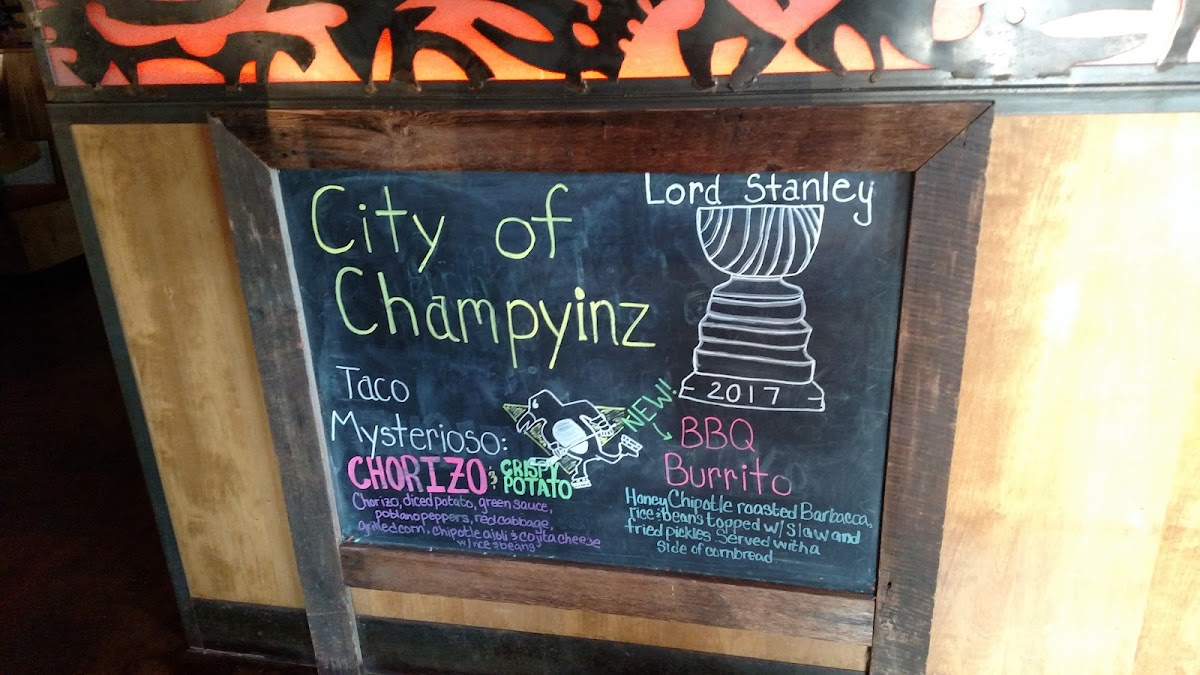 City of
Champyinz
Lord Stanley
2017
Taco
Mysterioso:
CHORIZO & CRISPY POTATO
Chorizo, diced potato, green sauce,
poblano peppers, red cabbage,
grilled corn, chipotle aioli & cojita cheese
w/ rice & beans
NEW!
BBQ
Burrito
Honey Chipotle roasted Barbacca,
rice & beans topped w/ slaw and
fried pickles. Served with a
side of cornbread